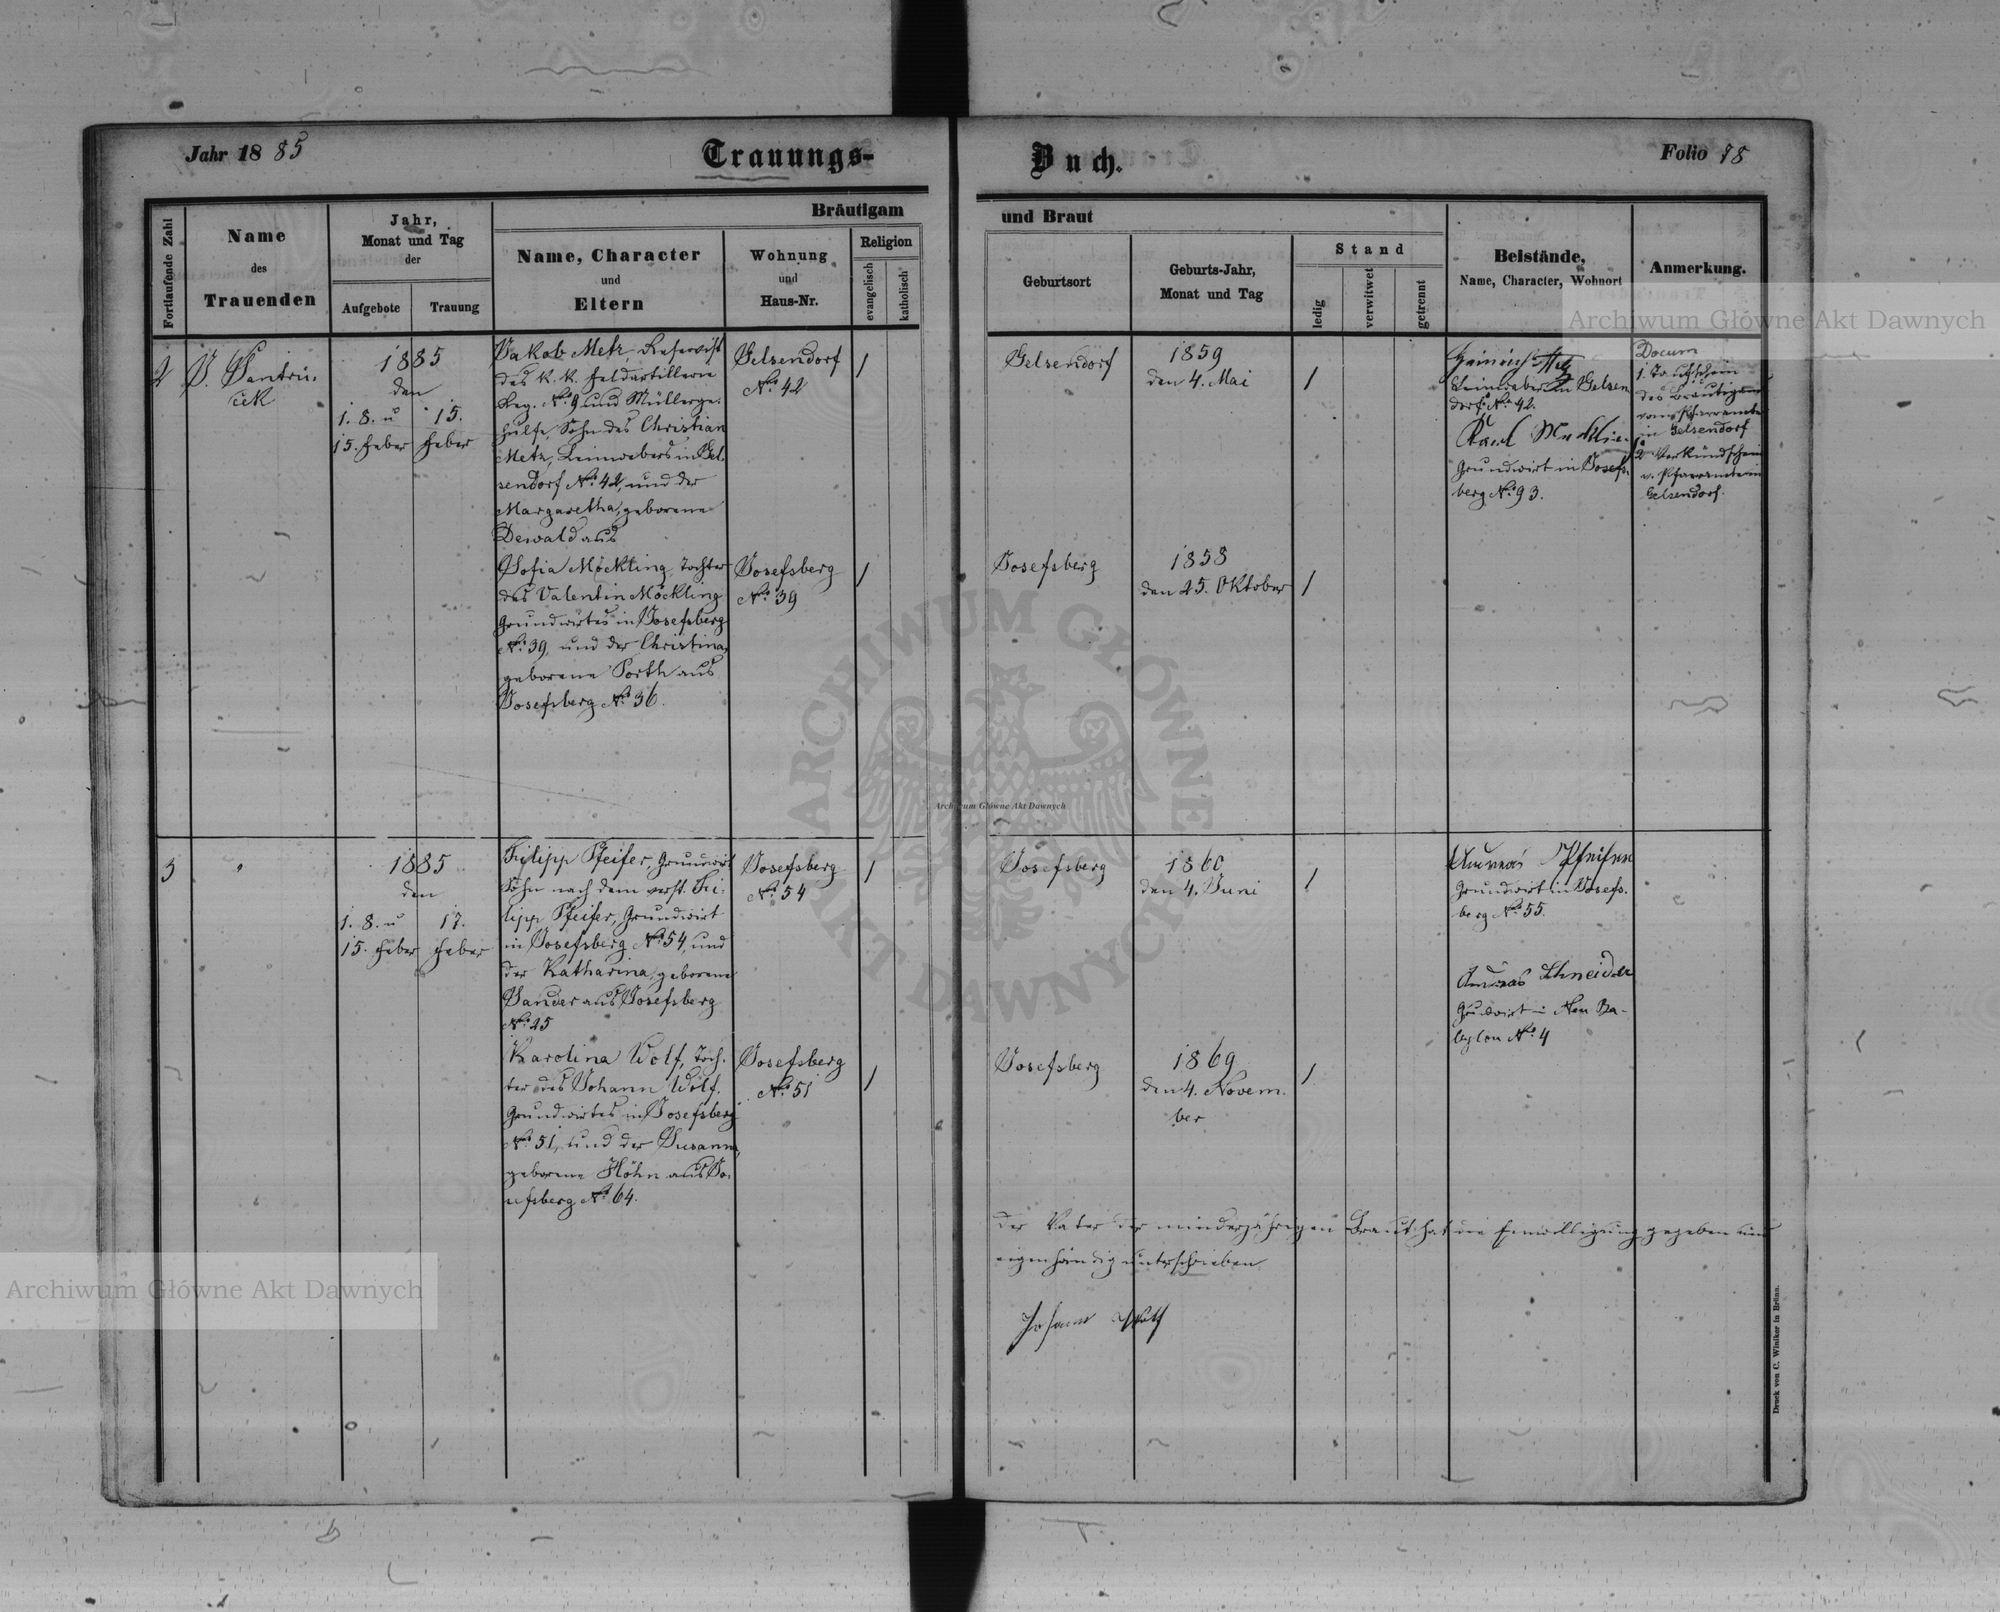 Jahr 1885
Trauungs-
Buch.
Folio 18
Fortlaufende Zahl
Name
des
Trauenden
Jahr,
Monat und Tag
der
Aufgebote
Trauung
Bräutigam
Name, Character
und
Eltern
Wohnung
und
Haus-Nr.
Religion
evangelisch
katholisch
und Braut
Geburtsort
Geburts-Jahr,
Monat und Tag
Stand
ledig
verwitwet
getrennt
Beistände,
Name, Character, Wohnort
Anmerkung.
2
1885
den
1. 8. u
15. Feber
15.
Feber
Jakob Metz, Reservist
des k. k. Feldartillerie
Reg. No. 9 und Müllerge-
hülfe, Sohn des Christian
Metz, Leinwebers in Gel-
sendorf No. 42, und der
Margaretha, geborene
Dewald aus
Gelsendorf
No. 42
/
Gelsendorf
1859
den 4. Mai
/
Heinrich Metz
Leinweber in Gelsen
dorf No. 42.
Karl
Grundwirt in Josefs-
berg No. 93.
Docum
1. Taufschein
des Bräutigams
vom Pfarramte
in Gelsendorf
2. Verkündschein
v. Pfarramte in
Gelsendorf.
Sofia Möckling, Tochter
des Valentin Möckling
Grundwirtes in Josefsberg
No. 39, und der Christina,
geborene Porth aus
Josefsberg No. 36.
Josefsberg
No. 39
/
Josefsberg
1858
den 25. Oktober
/
3
"
1885
den
1. 8. u
15. Feber
17.
Feber
Filipp Pfeifer, Grundwirt
Sohn nach dem verst. Fi-
lipp Pfeifer, Grundwirt
in Josefsberg No. 54, und
der Katharina, geborene
Sander aus Josefsberg
No. 25
Josefsberg
No. 54
/
Josefsberg
1860
den 4. Juni
/
Andreas Pfeifer
Grundwirt in Josefs-
berg No. 55.
Andreas Schneider
Grundwirt in Neu Ba-
bylon No. 4
Karolina Wolf, Toch-
ter des Johann Wolf,
Grundwirtes in Josefsberg
No. 51, und der Susanna,
geborene Höhn aus Jo-
sefsberg No. 64.
Josefsberg
No. 51
/
Josefsberg
1869
den 4. Novem-
ber
/
Der Vater der minderjährigen Braut hat die Einwilligung gegeben und
eigenhändig unterschrieben.
Johann Wolf
Druck von C. Winiker in Brünn.
Archiwum Główne Akt Dawnych
Archiwum Główne Akt Dawnych
Archiwum Główne Akt Dawnych
ARCHIWUM GŁÓWNE AKT DAWNYCH